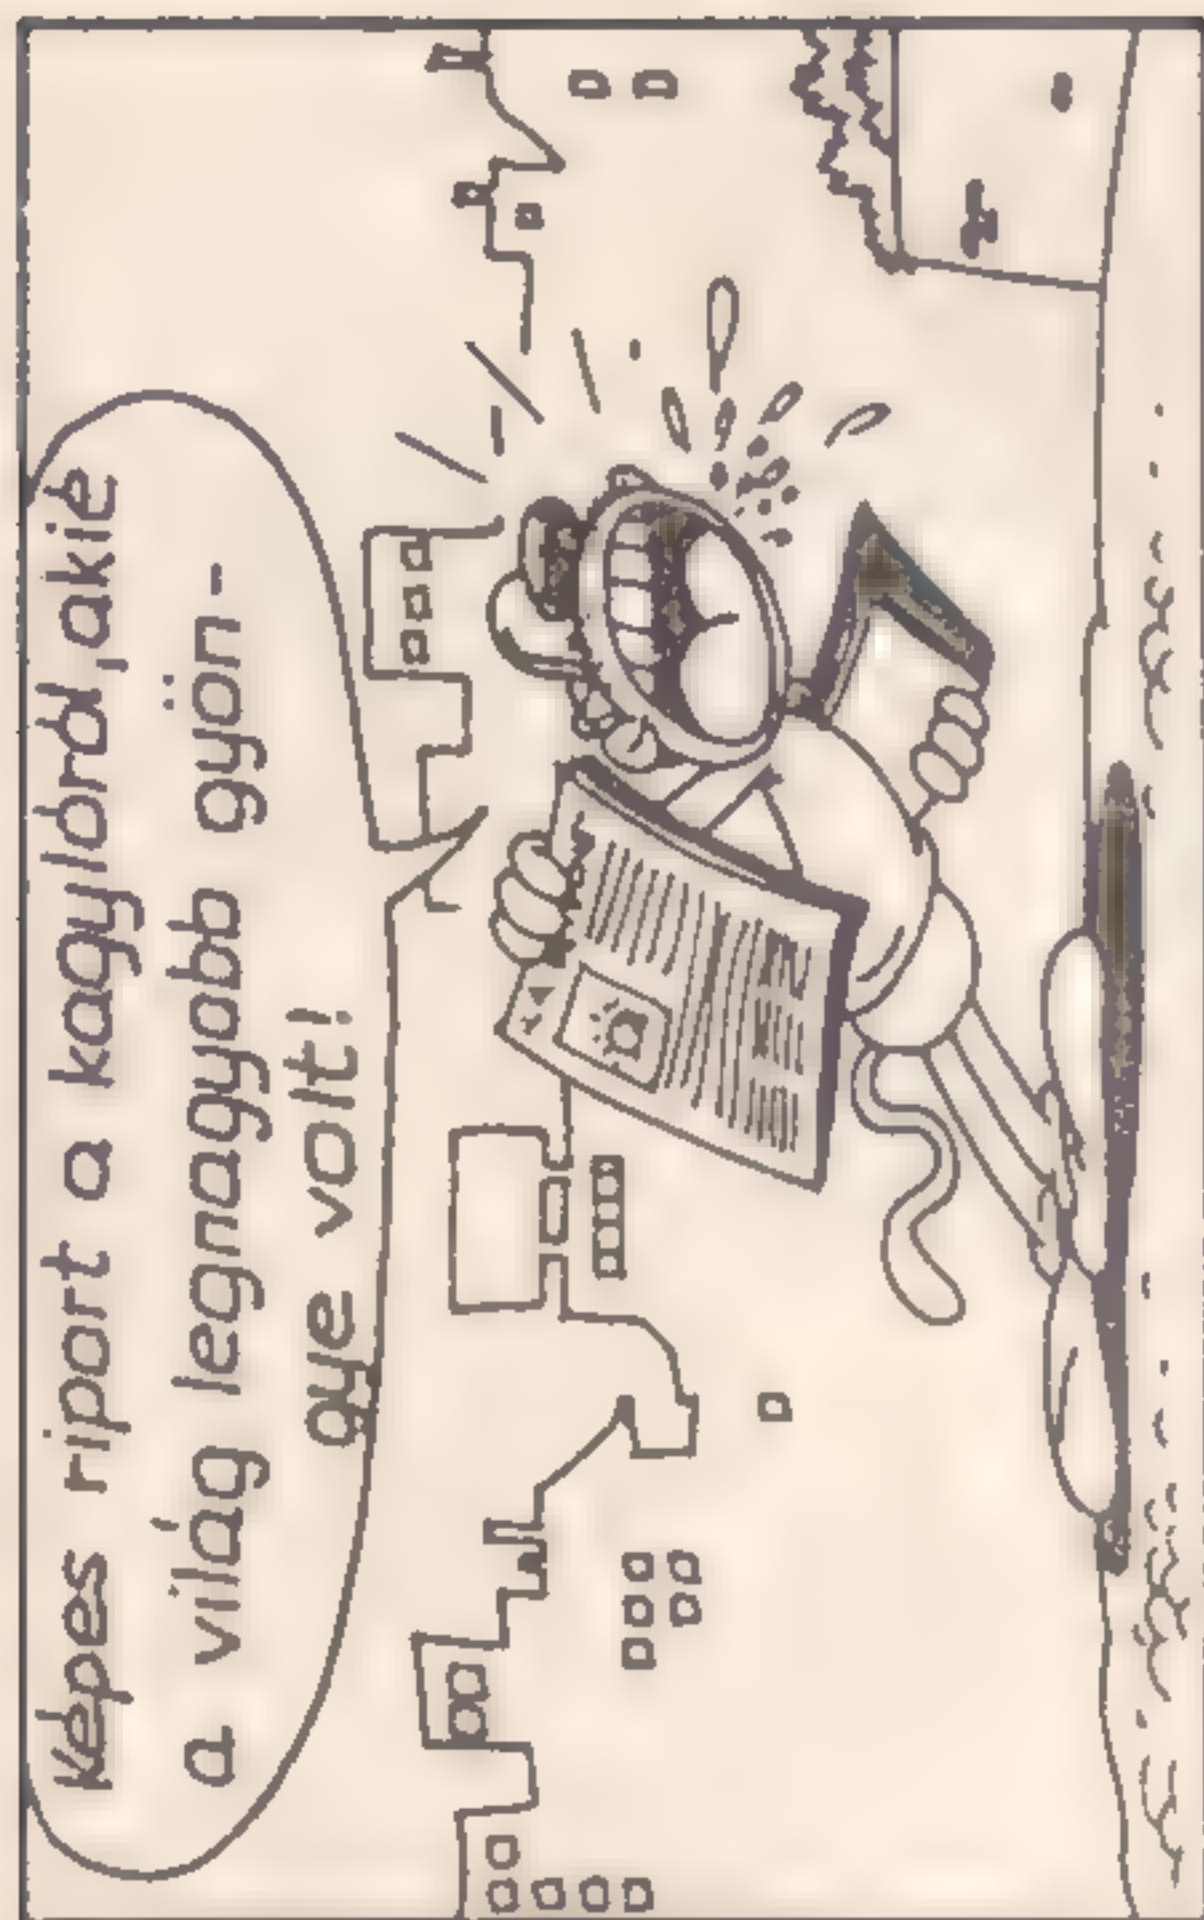 Képes riport a kagylóról, akié
a világ legnagyobb gyön-
gye volt!